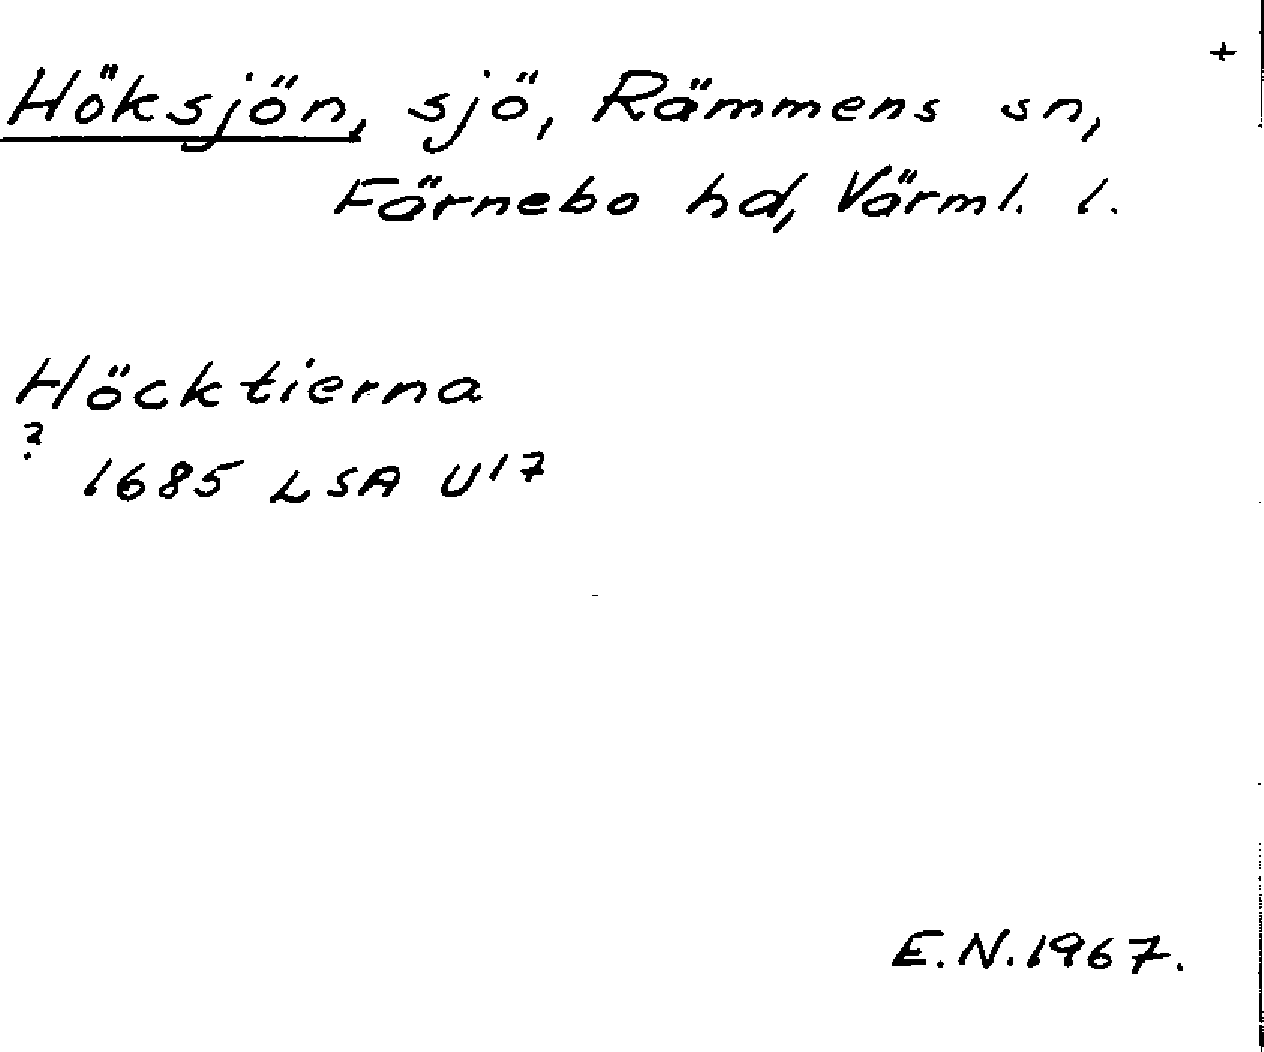 +
Höksjön, sjö, Rämmens sn,
Färnebo hd, Värml. l.
Höcktierna
?
1685 LSA U17
E.N. 1967.